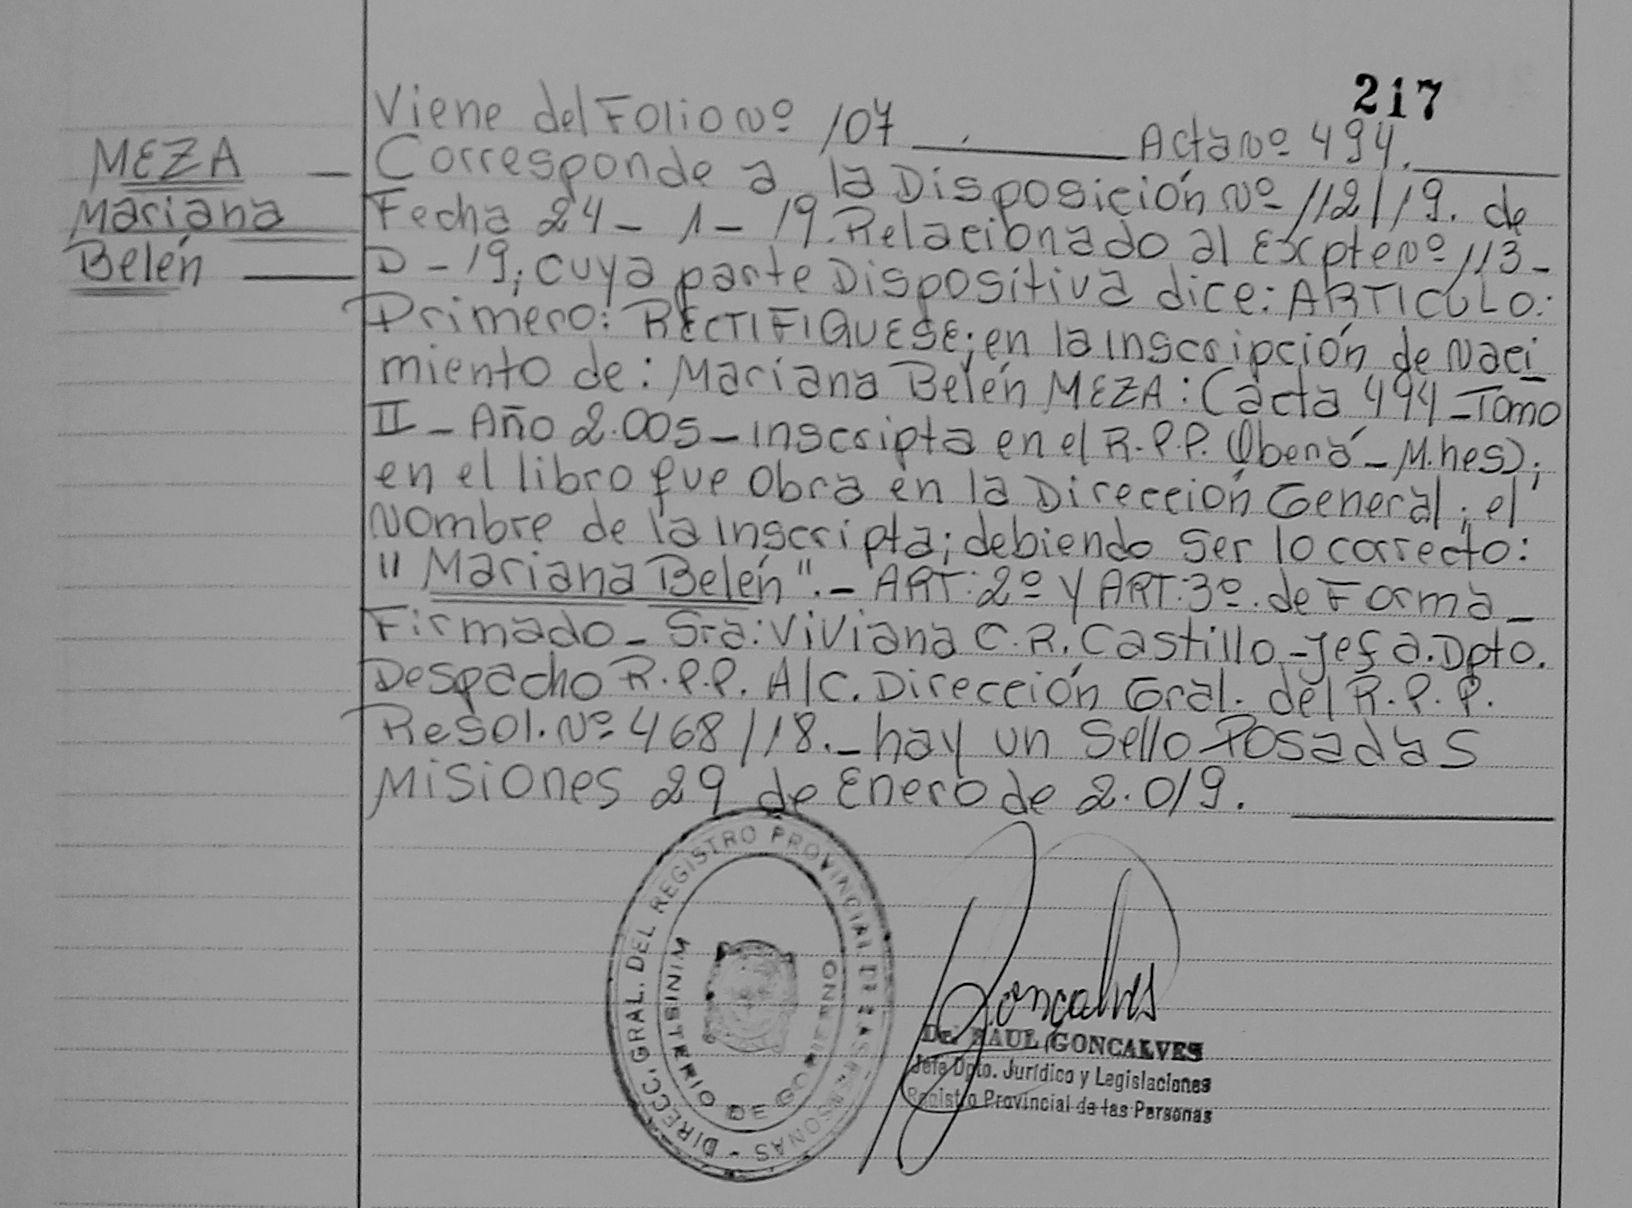 217
Viene del Folio Nº 107 Acta Nº 494.
MEZA
Mariana
Belén
Corresponde a la Disposición Nº 112/19. de
Fecha 24 - 1 - 19. Relacionado al Expte Nº 113 -
D - 19; cuya parte Dispositiva dice: ARTICULO:
Primero: RECTIFIQUESE; en la inscripción de Naci
miento de: Mariana Belén MEZA: (acta 494 - Tomo
II - Año 2.005 - inscripta en el R.P.P. Oberá - M.nes);
en el libro que obra en la Dirección General; el
Nombre de la inscripta; debiendo ser lo correcto:
"Mariana Belén". - ART: 2º Y ART: 3º. de Forma -
Firmado - Sra: Viviana C. R. Castillo - Jefa. Dpto.
Despacho R.P.P. A/C. Dirección Gral. del R.P.P.
Resol. Nº 468/18. - hay un Sello Posadas
Misiones 29 de Enero de 2.019.
DIRECC. GRAL. DEL REGISTRO PROVINCIAL DE LAS PERSONAS -
MINISTERIO DE GOBIERNO
Goncalves
Dr. RAUL GONCALVES
Jefe Dpto. Jurídico y Legislaciones
Registro Provincial de las Personas